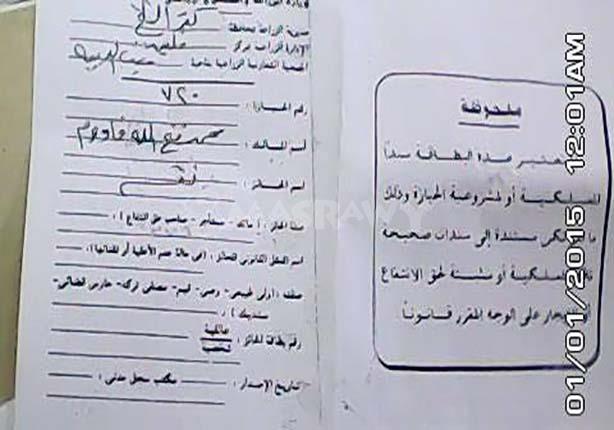 مديرية الزراعة بمحافظة : كفر الشيخ
الإدارة الزراعية بمركز :
الجمعية التعاونية الزراعية بناحية :
رقم الحيازة : ٧٢٠
اسم المالك : محمد فتح الله
اسم الحائز :
صفة الحائز : ( مالك - مستأجر - صاحب حق انتفاع ) .
اسم الممثل القانونى للحائز : (فى حالة عدم الأهلية أو نقصانها) .
صفته : ( ولى طبيعى - وصى - قيم - مصفى تركة - حارس قضائى -
سنديك ) .
رقم بطاقة الحائز : عائلية
شخصية
تاريخ الإصدار : مكتب سجل مدنى :
ملحوظة
هذه البطاقة سنداً
للملكية أو لمشروعية الحيازة وذلك
مستندة إلى سندات صحيحة
للملكية أو منشئة لحق الانتفاع
على الوجه المقرر قانوناً
MASRAWY
01/01/2015 12:01AM